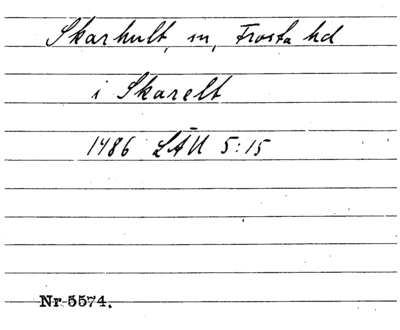 Skarhult, sn, Frosta hd
i Skarelt
1486 LÄU 5:15
Nr 5574.